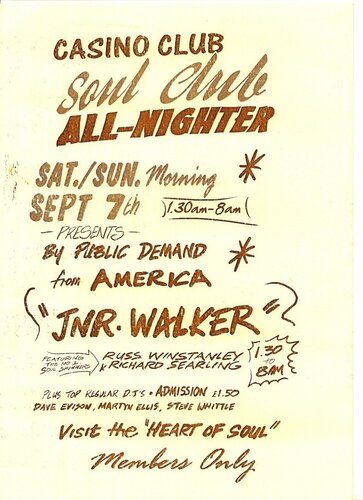 CASINO CLUB
Soul Club
ALL-NIGHTER
SAT./SUN. Morning
SEPT 7th 1.30am-8am
- PRESENTS -
By PUBLIC DEMAND
from AMERICA
"JNR. WALKER"
FEATURING THE NO.1 SOUL SPINNERS
RUSS WINSTANLEY
& RICHARD SEARLING
1.30 TO 8AM
PLUS TOP REGULAR D.J'S • ADMISSION £1.50
DAVE EVISON, MARTYN ELLIS, STEVE WHITTLE
Visit the "HEART OF SOUL"
Members Only